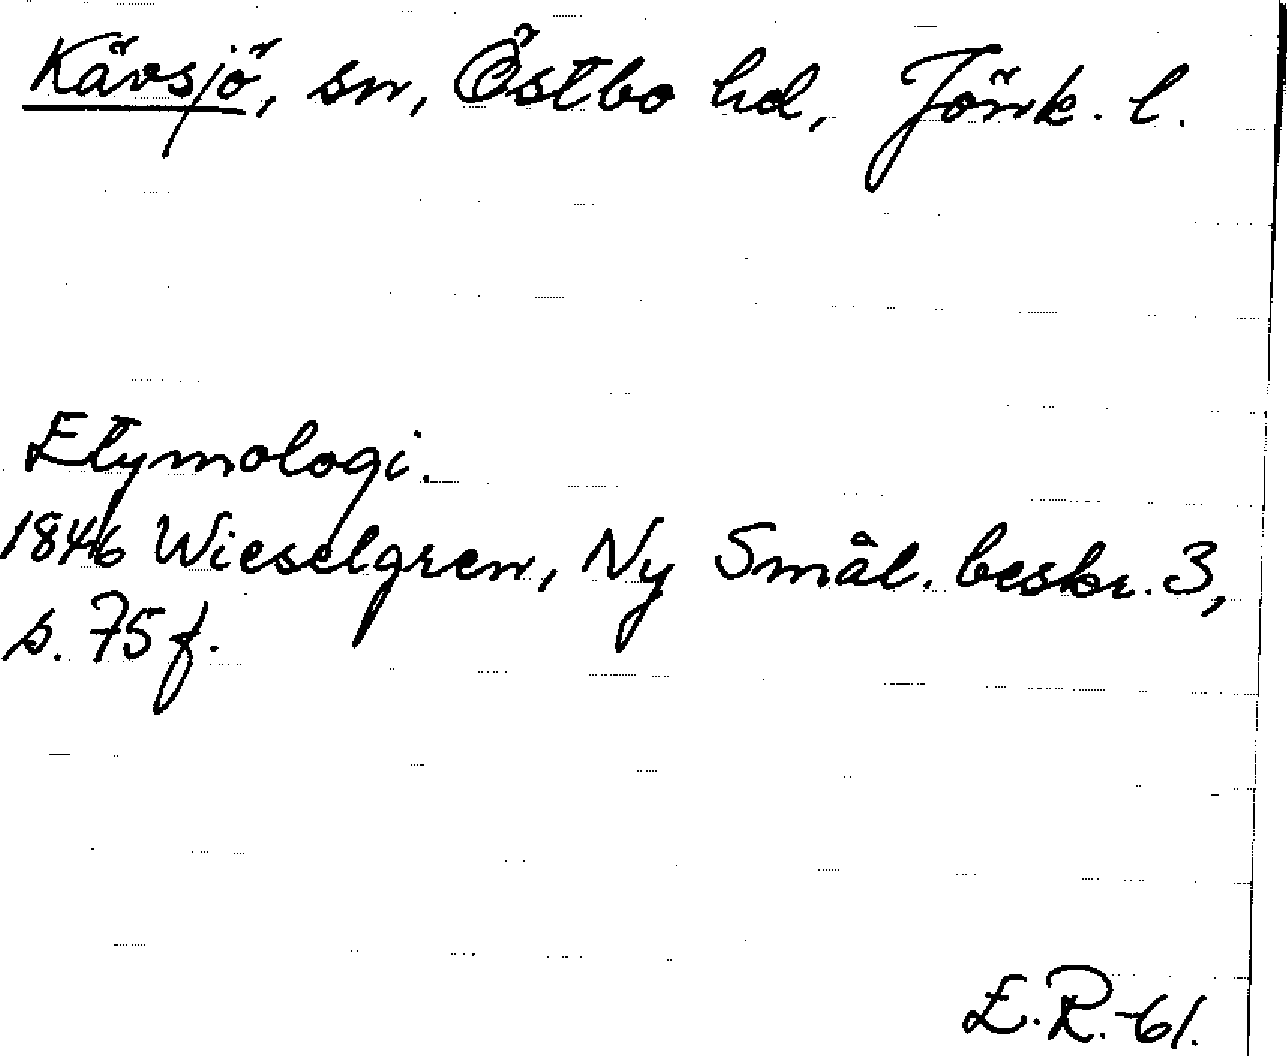 Kävsjö, sn, Östbo hd, Jönk. l.
Etymologi.
1846 Wieselgren, Ny Smål. beskr. 3,
s. 75 f.
E.R.-61.